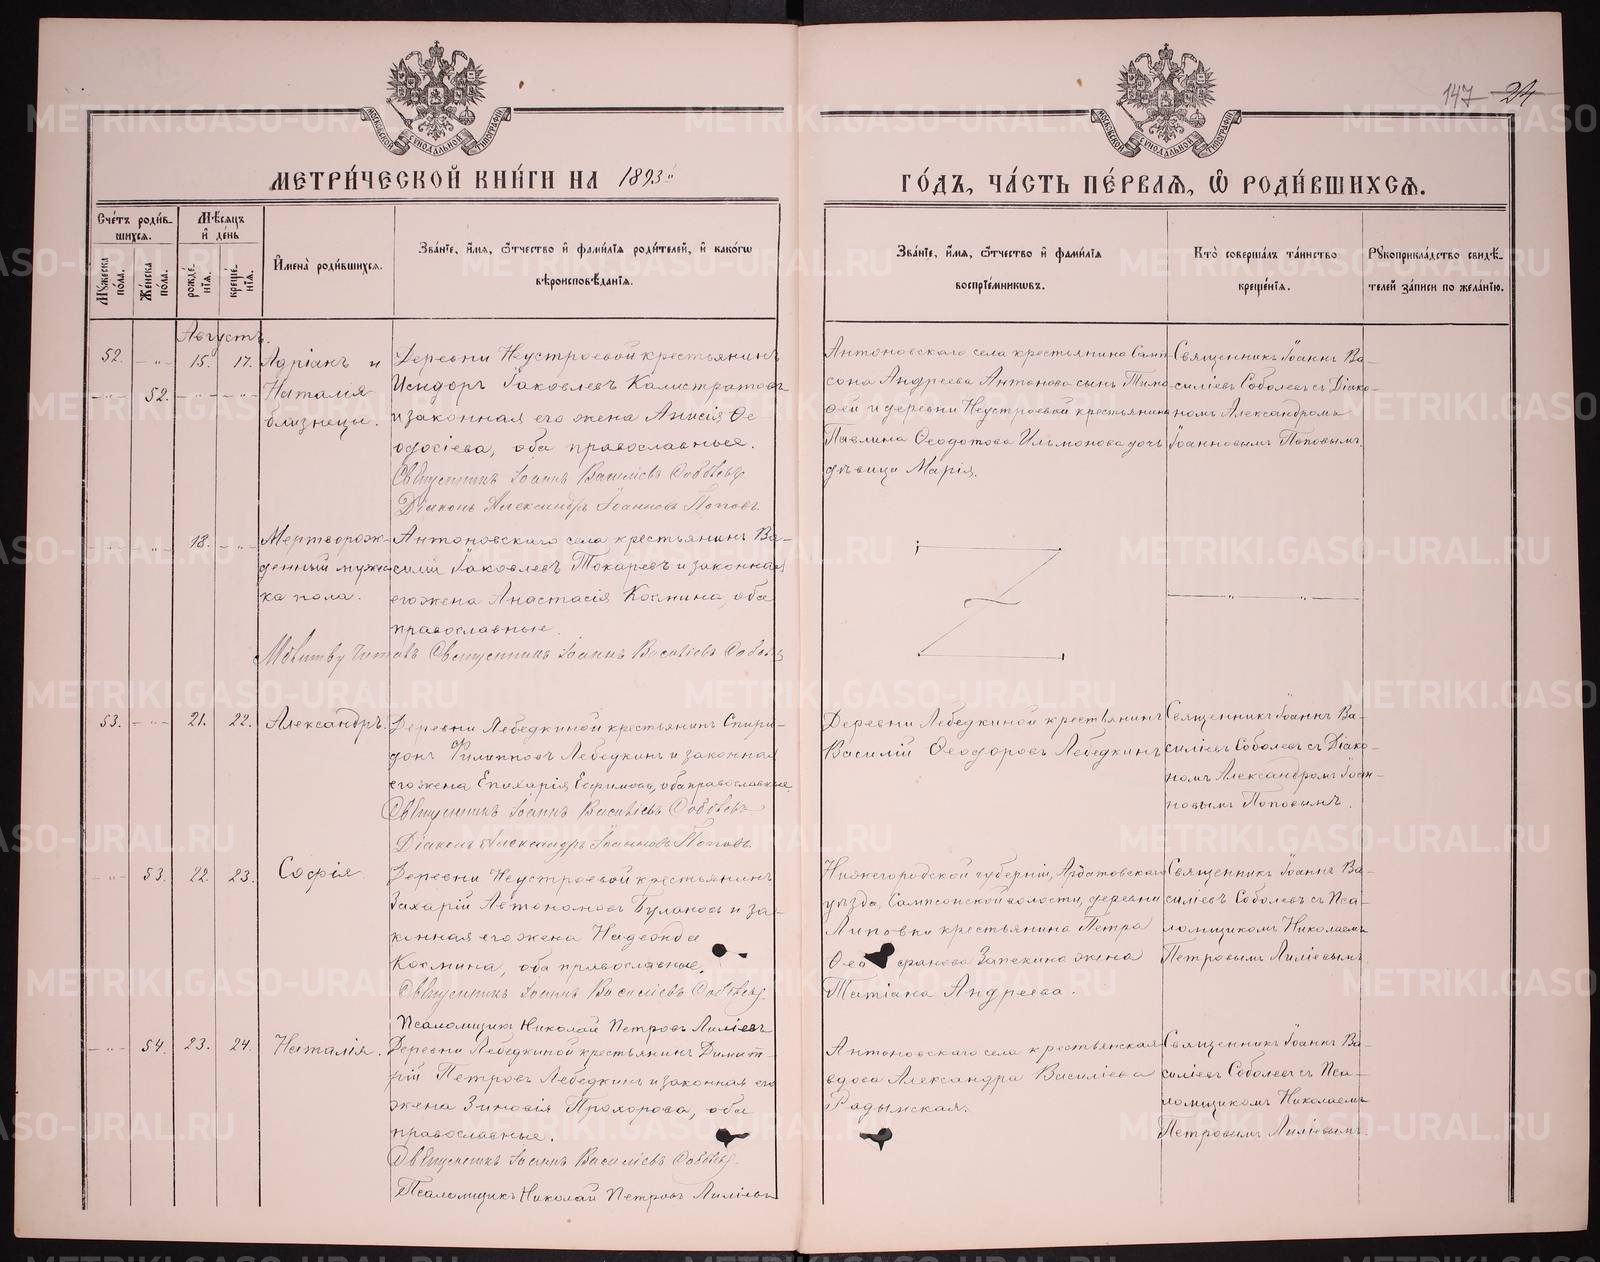 147 24
МОСКОВСКОЙ СУНОДАЛЬНОЙ ТИПОГРАФІИ
МОСКОВСКОЙ СУНОДАЛЬНОЙ ТИПОГРАФІИ
МЕТРИ́ЧЕСКОЙ КНИ́ГИ НА 1893й
ГО́ДЪ, ЧА́СТЬ ПЕ́РВАЯ, Ѡ҆ РОДИ́ВШИХСЯ.
Сче́тъ роди́в-
шихся.
Мꙋ́жеска по́ла.
Же́нска по́ла.
Мѣ́сяцъ и҆ де́нь
рожде́-
нїя.
креще́-
нїя.
И҆мена̀ роди́вшихся.
Зва́нїе, и҆́мя, ѻ҆́тчество и҆ фами́лїя роди́телей, и҆ како́гѡ
вѣроисповѣ́данїя.
Зва́нїе, и҆́мя, ѻ҆́тчество и҆ фами́лїя
воспрїе́мникѡвъ.
Кто̀ соверша́лъ та́инство
креще́нїя.
Рꙋкоприкла́дство свидѣ́-
телей за́писи по жела́нїю.
Августъ.
52. - " - 15. 17. Адріанъ и
- " - 52. - " - - " - Наталія
близнецы.
Деревни Неустроевой крестьянинъ
Исидоръ Іаковлевъ Калистратовъ
и законная его жена Анисія Ѳе-
одосіева, оба православные.
Священникъ Іоаннъ Василіевъ Соболевъ
Діаконъ Александръ Іоанновъ Поповъ.
Антоновскаго села крестьянина Самп-
сона Андреева Антонова сынъ Тимо-
ѳей и деревни Неустроевой крестьянина
Павлина Ѳеодотова Ильмонова дочь
дѣвица Марія.
Священникъ Іоаннъ Ва-
силіевъ Соболевъ съ Діако-
номъ Александромъ
Іоанновымъ Поповымъ.
- " - - " - 18. - " - Мертворож-
денный мужес-
ка пола.
Антоновскаго села крестьянинъ Ва-
силій Іаковлевъ Токаревъ и законная
его жена Анастасія Космина, оба
православные.
Молитву читалъ Священникъ Іоаннъ Василіевъ Соболевъ
53. - " - 21. 22. Александръ.
Деревни Лебедкиной крестьянинъ Спири-
донъ Филипповъ Лебедкинъ и законная
его жена Епихарія Евфимова, оба православные.
Священникъ Іоаннъ Василіевъ Соболевъ
Діаконъ Александръ Іоанновъ Поповъ.
Деревни Лебедкиной крестьянинъ
Василій Ѳеодоровъ Лебедкинъ
Священникъ Іоаннъ Ва-
силіевъ Соболевъ съ Діако-
номъ Александромъ Іоан-
новымъ Поповымъ.
- " - 53. 22. 23. Софія.
Деревни Неустроевой крестьянинъ
Захарій Автономовъ Булановъ и за-
конная его жена Надежда
Космина, оба православные.
Священникъ Іоаннъ Василіевъ Соболевъ
Псаломщикъ Николай Петровъ Лиліевъ
Нижегородской губерніи, Ардатовскаго
уѣзда, Сампсонской волости, деревни
Липовки крестьянина Петра
Запекина жена
Татіана Андреева.
Священникъ Іоаннъ Ва-
силіевъ Соболевъ съ Пса-
ломщикомъ Николаемъ
Петровымъ Лиліевымъ
- " - 54. 23. 24. Наталія.
Деревни Лебедкиной крестьянинъ Димит-
рій Петровъ Лебедкинъ и законная его
жена Зиновія Прохорова, оба
православные.
Священникъ Іоаннъ Василіевъ Соболевъ
Псаломщикъ Николай Петровъ Лиліевъ
Антоновскаго села крестьянская
вдова Александра Василіева
Радынская.
Священникъ Іоаннъ Ва-
силіевъ Соболевъ съ Пса-
ломщикомъ Николаемъ
Петровымъ Лиліевымъ.
METRIKI.GASO-URAL.RU